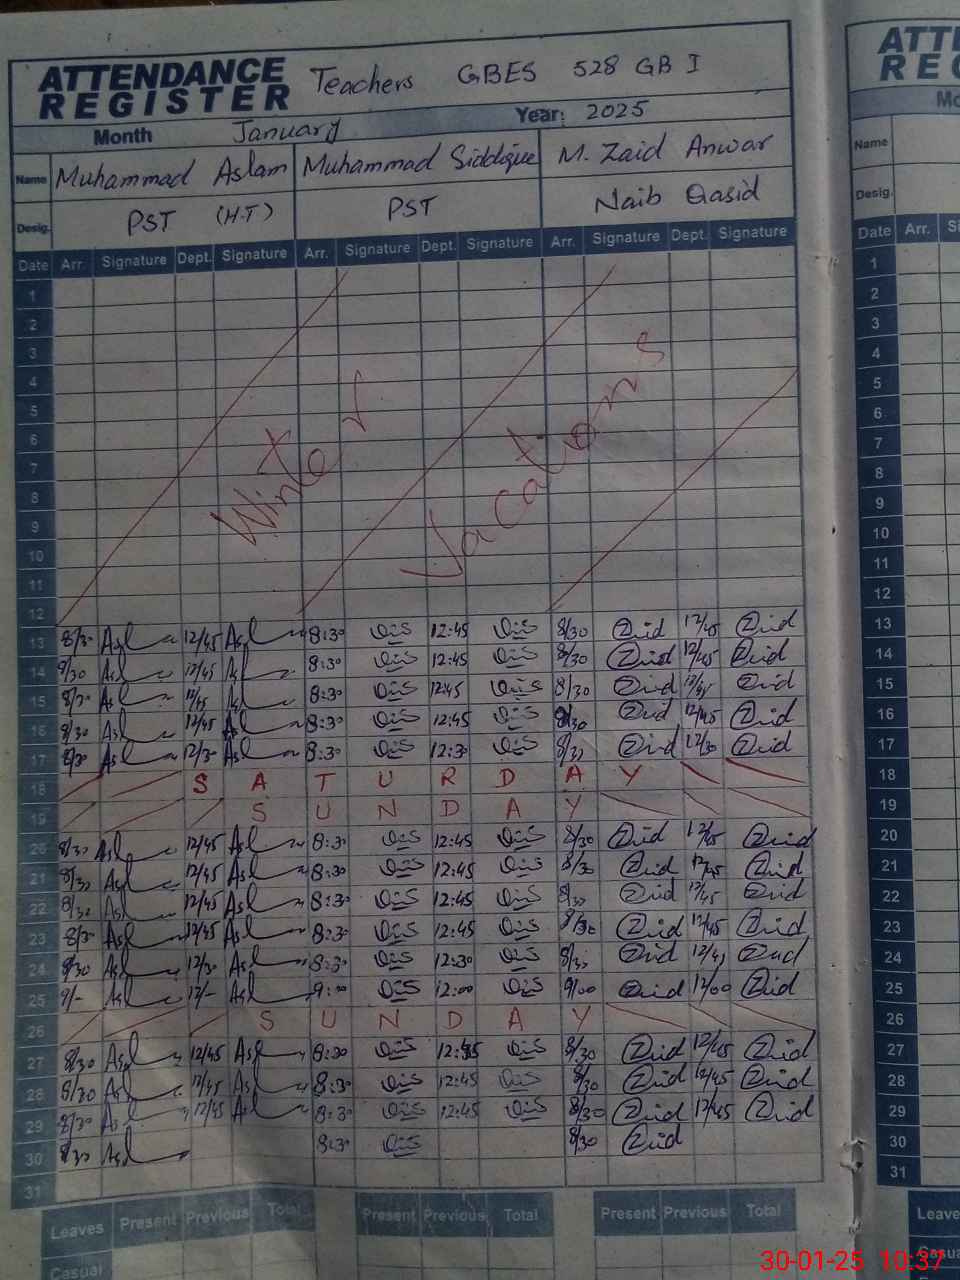 ATTENDANCE REGISTER Teachers GBES 528 GB I
Month January Year: 2025
Name Muhammad Aslam Muhammad Siddique M. Zaid Anwar
Desig. PST (H.T) PST Naib Qasid
Date Arr. Signature Dept. Signature Arr. Signature Dept. Signature Arr. Signature Dept. Signature
1
2
3
4
5
6
7
8
9
10
11
12
Winter Vacations
13 8/30 Asl 12/45 Asl 8:30 12:45 8/30 Zaid 12/45 Zaid
14 8/30 Asl 12/45 Asl 8:30 12:45 8/30 Zaid 12/45 Zaid
15 8/30 Asl 12/45 Asl 8:30 12:45 8/30 Zaid 12/45 Zaid
16 8/30 Asl 12/45 Asl 8:30 12:45 8/30 Zaid 12/45 Zaid
17 8/30 Asl 12/30 Asl 8:30 12:30 8/30 Zaid 12/30 Zaid
18 SATURDAY
19 SUNDAY
20 8/30 Asl 12/45 Asl 8:30 12:45 8/30 Zaid 12/45 Zaid
21 8/30 Asl 12/45 Asl 8:30 12:45 8/30 Zaid 12/45 Zaid
22 8/30 Asl 12/45 Asl 8:30 12:45 8/30 Zaid 12/45 Zaid
23 8/30 Asl 12/45 Asl 8:30 12:45 8/30 Zaid 12/45 Zaid
24 8/30 Asl 12/30 Asl 8:30 12:30 8/30 Zaid Zaid
25 9/- Asl 12/- Asl 9:00 12:00 9/00 Zaid 12/00 Zaid
26 SUNDAY
27 8/30 Asl 12/45 Asl 8:30 12:45 8/30 Zaid 12/45 Zaid
28 8/30 Asl 12/45 Asl 8:30 12:45 8/30 Zaid 12/45 Zaid
29 8/30 Asl 12/45 Asl 8:30 12:45 8/30 Zaid 12/45 Zaid
30 8/30 Asl 8:30 8/30 Zaid
31
Leaves Present Previous Total Present Previous Total Present Previous Total
Casual
ATTE
REG
Mo
Name
Desig.
Date Arr. Si
1
2
3
4
5
6
7
8
9
10
11
12
13
14
15
16
17
18
19
20
21
22
23
24
25
26
27
28
29
30
31
Leave
Casua
30-01-25 10:37